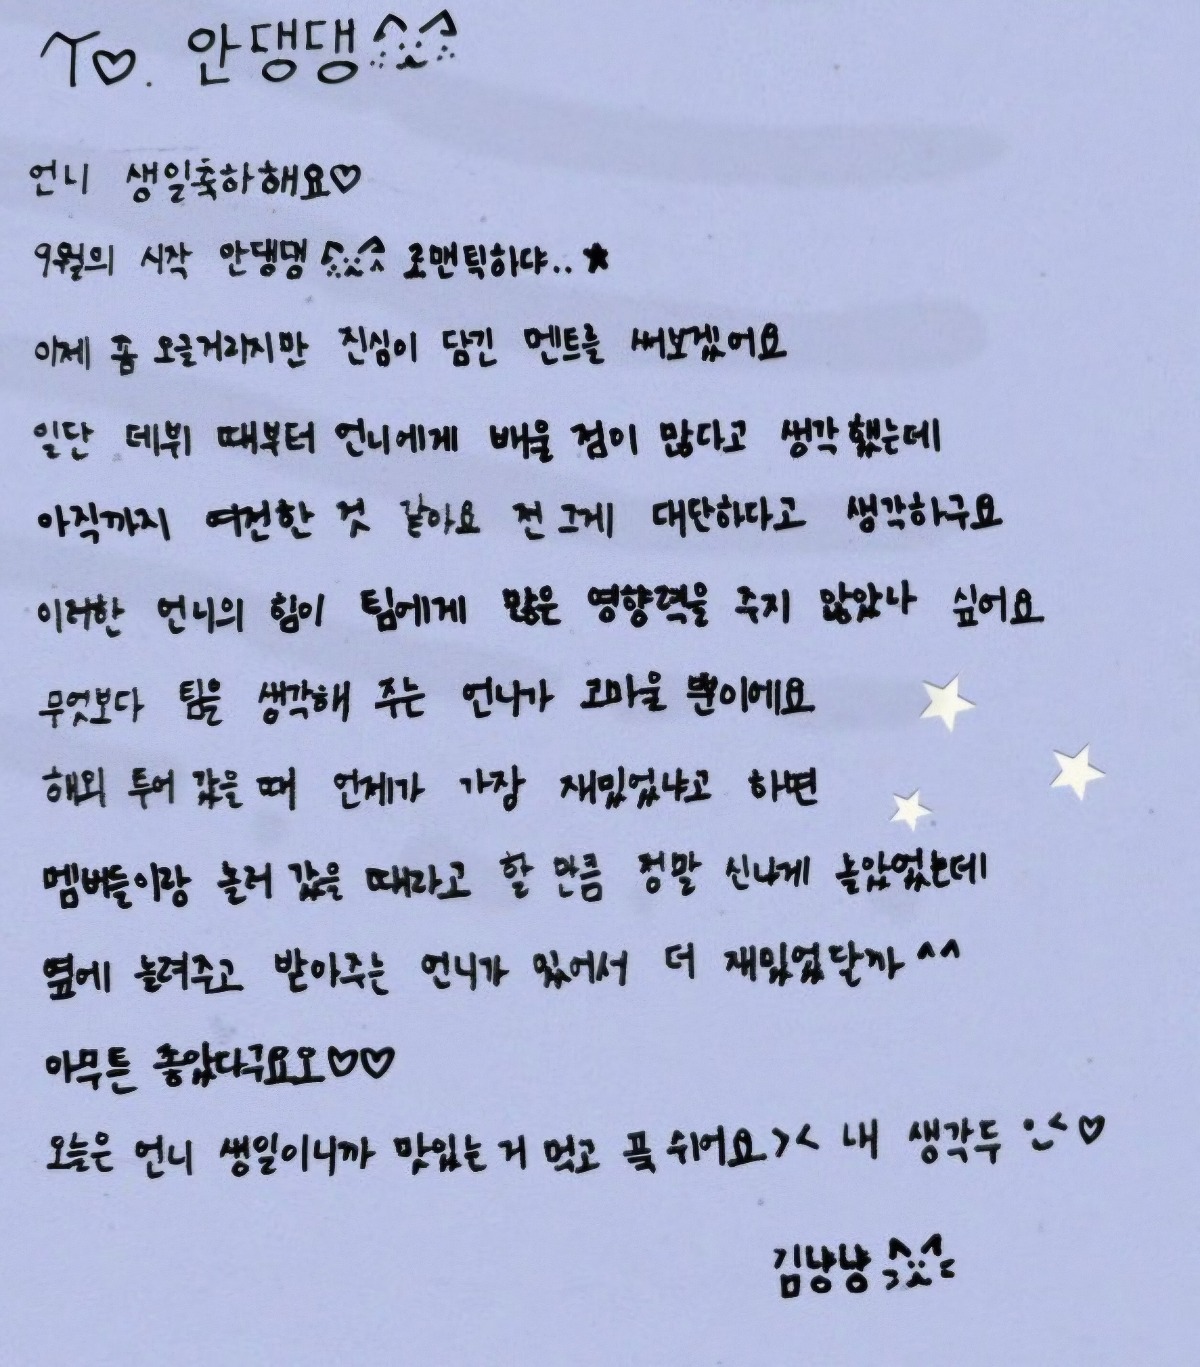 To. 안댕댕
언니 생일축하해요♡
9월의 시작 안댕댕 로맨틱하댜..★
이제 좀 오글거리지만 진심이 담긴 멘트를 써보겠어요
일단 데뷔 때부터 언니에게 배울 점이 많다고 생각했는데
아직까지 여전한 것 같아요 전 그게 대단하다고 생각하구요
이러한 언니의 힘이 팀에게 많은 영향력을 주지 않았나 싶어요
무엇보다 팀을 생각해 주는 언니가 고마울 뿐이에요
해외 투어 갔을 때 언제가 가장 재밌었냐고 하면
멤버들이랑 놀러 갔을 때라고 할 만큼 정말 신나게 놀았었는데
옆에 놀려주고 받아주는 언니가 있어서 더 재밌었달까^^
아무튼 좋았다구요오♡♡
오늘은 언니 생일이니까 맛있는 거 먹고 푹 쉬어요>< 내 생각두 ♡
김냥냥